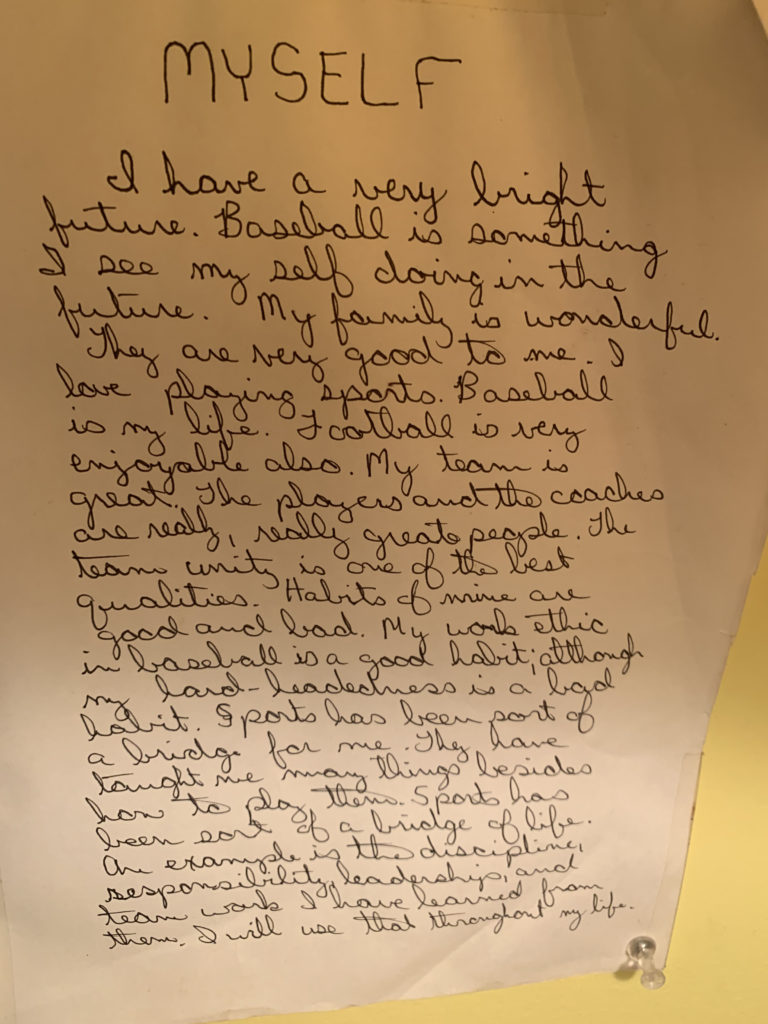 MYSELF
I have a very bright
future. Baseball is something
I see my self doing in the
future. My family is wonderful.
They are very good to me. I
love playing sports. Baseball
is my life. Football is very
enjoyable also. My team is
great. The players and the coaches
are really, really great people. The
team unity is one of the best
qualities. Habits of mine are
good and bad. My work ethic
in baseball is a good habit; although
my hard-headedness is a bad
habit. Sports has been sort of
a bridge for me. They have
taught me many things besides
how to play them. Sports has
been sort of a bridge of life.
An example is the discipline,
responsibility, leadership, and
team work I have learned from
them. I will use that throughout my life.